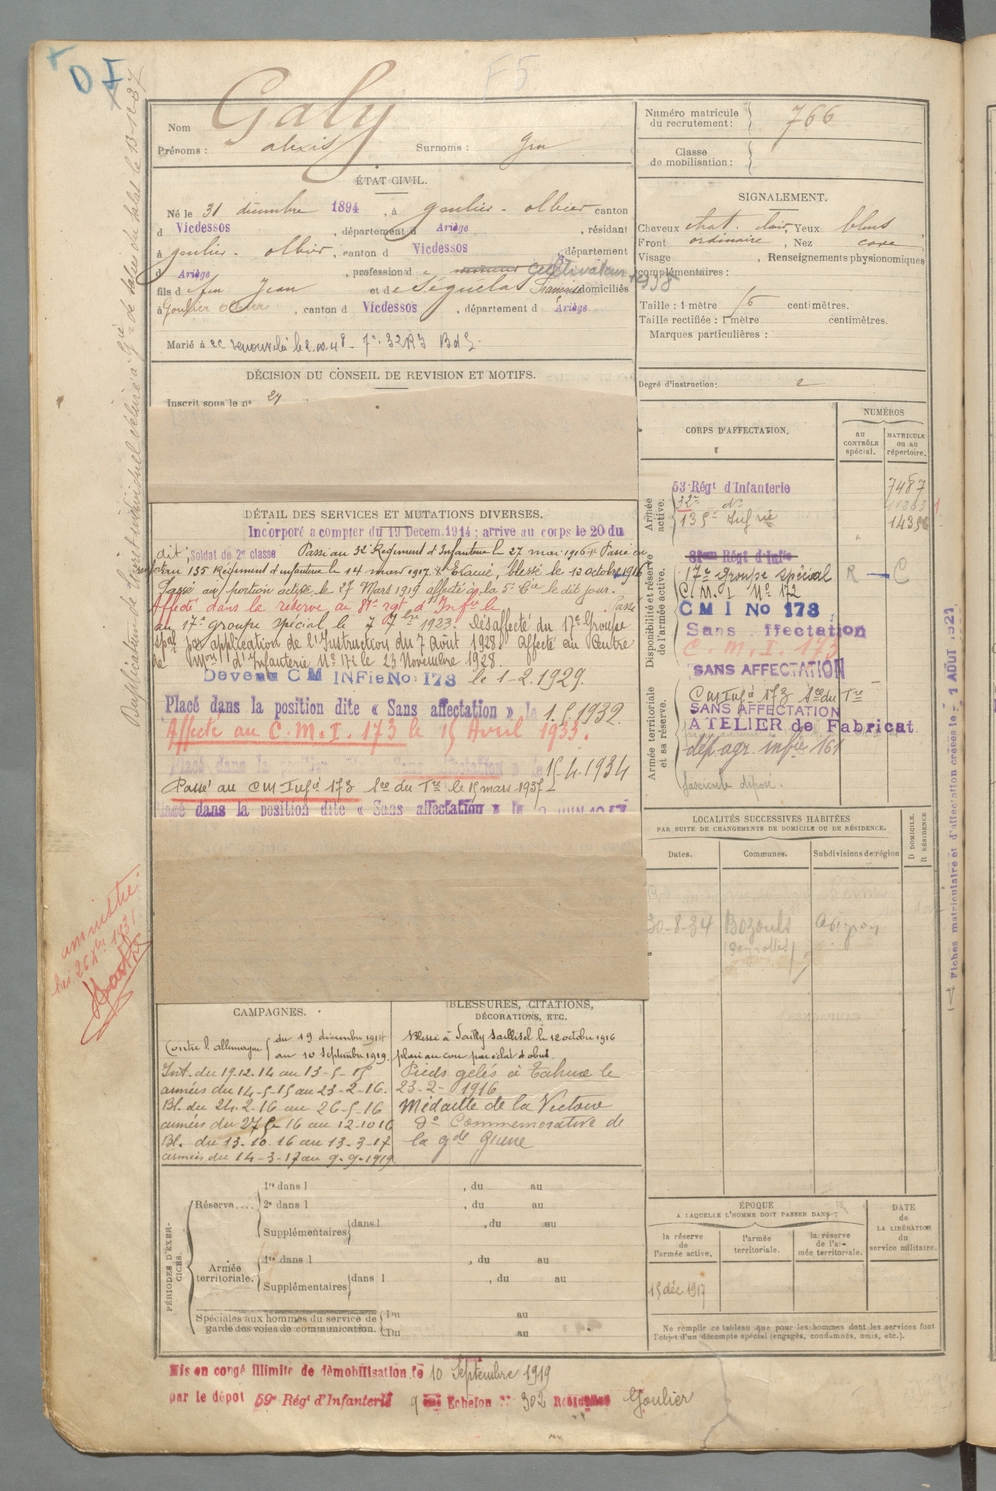 Nom Galy
Prénoms : alexis Surnoms :
Numéro matricule du recrutement : 766
Classe de mobilisation :
ÉTAT CIVIL.
Né le 31 décembre 1894, à goulier - olbier canton
d Vicdessos, département d Ariège, résidant
à goulier - olbier, canton d Vicdessos, département
d Ariège, profession d cultivateur
fils d feu Jean et de Séguélas domiciliés
à Goulier olbier, canton d Vicdessos, département d Ariège
Marié à
DÉCISION DU CONSEIL DE REVISION ET MOTIFS.
Inscrit sous le n° 27
SIGNALEMENT.
Cheveux chat. clair, Yeux bleus
Front ordinaire, Nez cave
Visage , Renseignements physionomiques
complémentaires :
Taille : 1 mètre 75 centimètres.
Taille rectifiée : 1 mètre centimètres.
Marques particulières :
Degré d'instruction : 2
DÉTAIL DES SERVICES ET MUTATIONS DIVERSES.
Incorporé a compter du 19 Decem. 1914 ; arrive au corps le 20 du
dit, Soldat de 2e classe Passé au 32e Régiment d'Infanterie le 27 mai 1916 Passé
au 135 Régiment d'infanterie le 14 mars 1917 Evacué, blessé le 12 octobre 1916
Passé au portion active le 27 Mars 1919 affecté à la 5e Cie le dit jour.
Affecté dans la réserve au 81e rgt d'Infie Passé
au 17e groupe spécial le 7 1923. Désaffecté du 17e Groupe
spal par application de l'Instruction du 7 Août 1928. Affecté au Centre
de Mon d'Infanterie N° 171 le 23 Novembre 1928.
Devenu CM INFie No 173 le 1-2.1929.
Placé dans la position dite « Sans affectation » le 1.5.1932.
Affecté au C.M.I. 173 le 15 Avril 1933.
Placé dans la position dite « Sans affectation » le 15-4.1934
Passé au CM Infie 173 du Tre le 15 mars 1937
Placé dans la position dite « Sans affectation » le
CORPS D'AFFECTATION.
NUMÉROS
au CONTRÔLE spécial.
MATRICULE ou au répertoire.
Armée active.
53e Régt d'Infanterie 7487
32e do
135e Infrie 14356
Disponibilité et réserve de l'armée active.
81eme Régt d'Infie
17e groupe spécial R — C
C M I N° 172
C M I No 173
Sans affectation
C. M. I. 173
SANS AFFECTATION
Armée territoriale et sa réserve.
CM Infie 173 du Tre
SANS AFFECTATION
ATELIER de Fabricat
dép. agr. infie 161
fascicule déposé.
LOCALITÉS SUCCESSIVES HABITÉES
PAR SUITE DE CHANGEMENTS DE DOMICILE OU DE RÉSIDENCE.
Dates. Communes. Subdivisions de région
D DOMICILE. R RÉSIDENCE
30-8-34 Avignon
CAMPAGNES.
Contre l'allemagne du 19 décembre 1914
au 10 Septembre 1919.
Int. du 19.12.14 au 13-5-15
armées du 14-5-15 au 23-2-16.
Bl. du 24.2.16 au 26-5-16
armées du 27-5-16 au 12-10 16
Bl. du 13-10.16 au 13-3-17
armées du 14-3-17 au 9-9-1919
BLESSURES, CITATIONS, DÉCORATIONS, ETC.
Blessé à Sailly Saillisel le 12 octobre 1916
plaie au cou par éclat d'obus.
Pieds gelés à Tahure le
23-2-1916
Médaille de la Victoire
do Commemorative de
la gde Guerre
PÉRIODES D'EXERCICES.
Réserve....
1re dans l , du au
2e dans l , du au
Supplémentaires dans l , du au
Armée territoriale.
1re dans l , du au
Supplémentaires dans l , du au
Spéciales aux hommes du service de garde des voies de communication.
Du au
Du au
ÉPOQUE
A LAQUELLE L'HOMME DOIT PASSER DANS :
la réserve de l'armée active.
l'armée territoriale.
la réserve de l'armée territoriale.
DATE de LA LIBÉRATION du service militaire.
15 déc 1917
Ne remplir ce tableau que pour les hommes dont les services font
l'objet d'un décompte spécial (engagés, condamnés, omis, etc.).
Mis en congé illimité de démobilisation le 10 Septembre 1919
par le dépot 59e Régt d'Infanterie 9 eme Echelon N° 302 Goulier
Fiches matriculaire et d'affectation créées le 1 AOUT 1927
amnistie